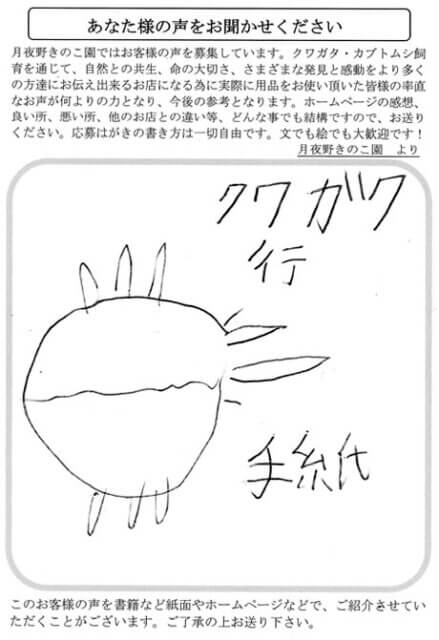 あなた様の声をお聞かせください
月夜野きのこ園ではお客様の声を募集しています。クワガタ・カブトムシ飼
育を通じて、自然との共生、命の大切さ、さまざまな発見と感動をより多く
の方達にお伝え出来るお店になる為に実際に用品をお使い頂いた皆様の率直
なお声が何よりの力となり、今後の参考となります。ホームページの感想、
良い所、悪い所、他のお店との違い等、どんな事でも結構ですので、お送り
ください。応募はがきの書き方は一切自由です。文でも絵でも大歓迎です！
月夜野きのこ園　より
クワガク
行
手紙
このお客様の声を書籍など紙面やホームページなどで、ご紹介させてい
ただくことがございます。ご了承の上お送り下さい。